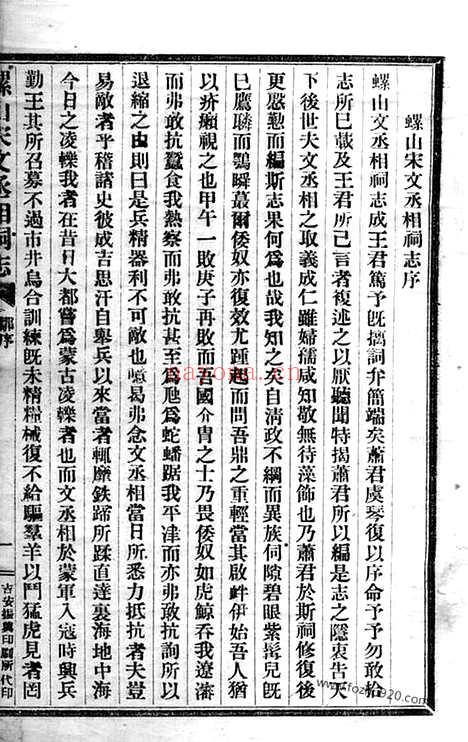 螺山宋文丞相祠志序
螺山文丞相祠志成王君篤予旣擂詞弁簡端矣蕭君虞琴復以序命予予勿敢拾
志所巳載及王君所巳言者複述之以厭聽聞特揭蕭君所以編是志之隱衷告天
下後世夫文丞相之取義成仁雖婦孺咸知敬無待藻飾也乃蕭君於斯祠修復後
更慇懃而編斯志果何爲也哉我知之矣自清政不綱而異族伺隙碧眼紫髯兒旣
巳鷹瞵而鶚瞬蕞爾倭奴亦復效尤踵起而問吾鼎之重輕當其啟衅伊始吾人猶
以疥癩視之也甲午一敗庚子再敗而吾國介胄之士乃畏倭奴如虎鯨吞我遼瀋
而弗敢抗蠶食我熱察而弗敢抗甚至爲虺爲蛇蟠踞我平津而亦弗敢抗詢所以
退縮之由則曰是兵精器利不可敵也噫曷弗念文丞相當日所悉力抵抗者夫豈
易敵者乎稽諸史彼成吉思汗自舉兵以來當者輒靡鉄蹄所蹂直達裏海地中海
今日之凌轢我者在昔日大都嘗爲蒙古凌轢者也而文丞相於蒙軍入寇時興兵
勤王其所召募不過市井烏合訓練旣未精糧械復不給驅羣羊以鬥猛虎見者罔
螺山宋文丞相祠志
鄒序
一
吉安振興印刷所代印
nayona.cn
www.fozhu920.com